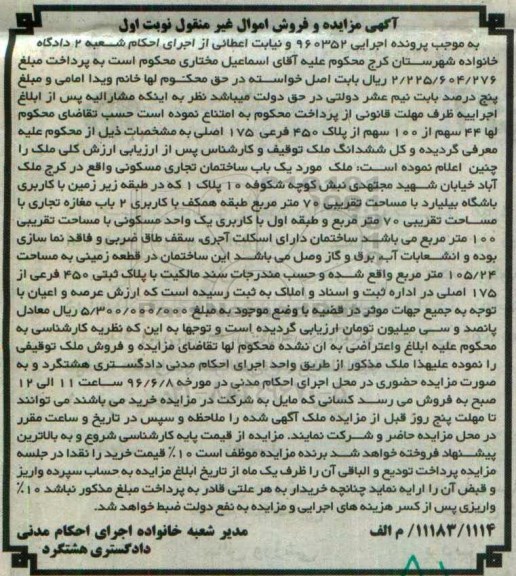 آگهی مزایده و فروش اموال غیر منقول نوبت اول
به موجب پرونده اجرایی ۹۶۰۳۵۲ و نیابت اعطائی از اجرای احکام شعبه ۲ دادگاه
خانواده شهرستان کرج محکوم علیه آقای اسماعیل مختاری محکوم است به پرداخت مبلغ
۲/۲۲۵/۶۰۴/۲۷۶ ریال بابت اصل خواسته در حق محکوم لها خانم ویدا امامی و مبلغ
پنج درصد بابت نیم عشر دولتی در حق دولت میباشد نظر به اینکه مشارالیه پس از ابلاغ
اجراییه ظرف مهلت قانونی از پرداخت محکوم به امتناع نموده است حسب تقاضای محکوم
لها ۴۴ سهم از ۱۰۰ سهم از پلاک ۴۵۰ فرعی ۱۷۵ اصلی به مشخصات ذیل از محکوم علیه
معرفی گردیده و کل ششدانگ ملک توقیف و کارشناس پس از ارزیابی ارزش کلی ملک را
چنین اعلام نموده است: ملک مورد یک باب ساختمان تجاری مسکونی واقع در کرج ملک
آباد خیابان شهید مجتهدی نبش کوچه شکوفه ۱۰ پلاک ۱ که در طبقه زیر زمین با کاربری
باشگاه بیلیارد با مساحت تقریبی ۷۰ متر مربع طبقه همکف با کاربری ۲ باب مغازه تجاری با
مساحت تقریبی ۷۰ متر مربع و طبقه اول با کاربری یک واحد مسکونی با مساحت تقریبی
۱۰۰ متر مربع می باشد ساختمان دارای اسکلت آجری، سقف طاق ضربی و فاقد نما سازی
بوده و انشعابات آب، برق و گاز وصل می باشد این ساختمان در قطعه زمینی به مساحت
۱۰۵/۲۴ متر مربع واقع شده و حسب مندرجات سند مالکیت با پلاک ثبتی ۴۵۰ فرعی از
۱۷۵ اصلی در اداره ثبت و اسناد و املاک به ثبت رسیده است که ارزش عرصه و اعیان با
توجه به جمیع جهات موثر در قضیه با وضع موجود به مبلغ ۵/۳۰۰/۰۰۰/۰۰۰ ریال معادل
پانصد و سی میلیون تومان ارزیابی گردیده است و توجها به این که نظریه کارشناسی به
محکوم علیه ابلاغ واعتراضی به ان نشده محکوم لها تقاضای مزایده و فروش ملک توقیفی
را نموده علیهذا ملک مذکور از طریق واحد اجرای احکام مدنی دادگستری هشتگرد و به
صورت مزایده حضوری در محل اجرای احکام مدنی در مورخه ۹۶/۶/۸ ساعت ۱۱ الی ۱۲
صبح به فروش می رسد کسانی که مایل به شرکت در مزایده خرید می باشند می توانند
تا مهلت پنج روز قبل از مزایده ملک آگهی شده را ملاحظه و سپس در تاریخ و ساعت مقرر
در محل مزایده حاضر و شرکت نمایند. مزایده از قیمت پایه کارشناسی شروع و به بالاترین
پیشنهاد فروخته خواهد شد برنده مزایده موظف است ۱۰٪ قیمت خرید را نقدا در جلسه
مزایده پرداخت تودیع و الباقی آن را ظرف یک ماه از تاریخ ابلاغ مزایده به حساب سپرده واریز
و قبض آن را ارایه نماید چنانچه خریدار به هر علتی قادر به پرداخت مبلغ مذکور نباشد ۱۰٪
واریزی پس از کسر هزینه های اجرایی و مزایده به نفع دولت ضبط خواهد شد.
۱۱۱۸۳/۱۱۱۴/ م الف
مدیر شعبه خانواده اجرای احکام مدنی
دادگستری هشتگرد